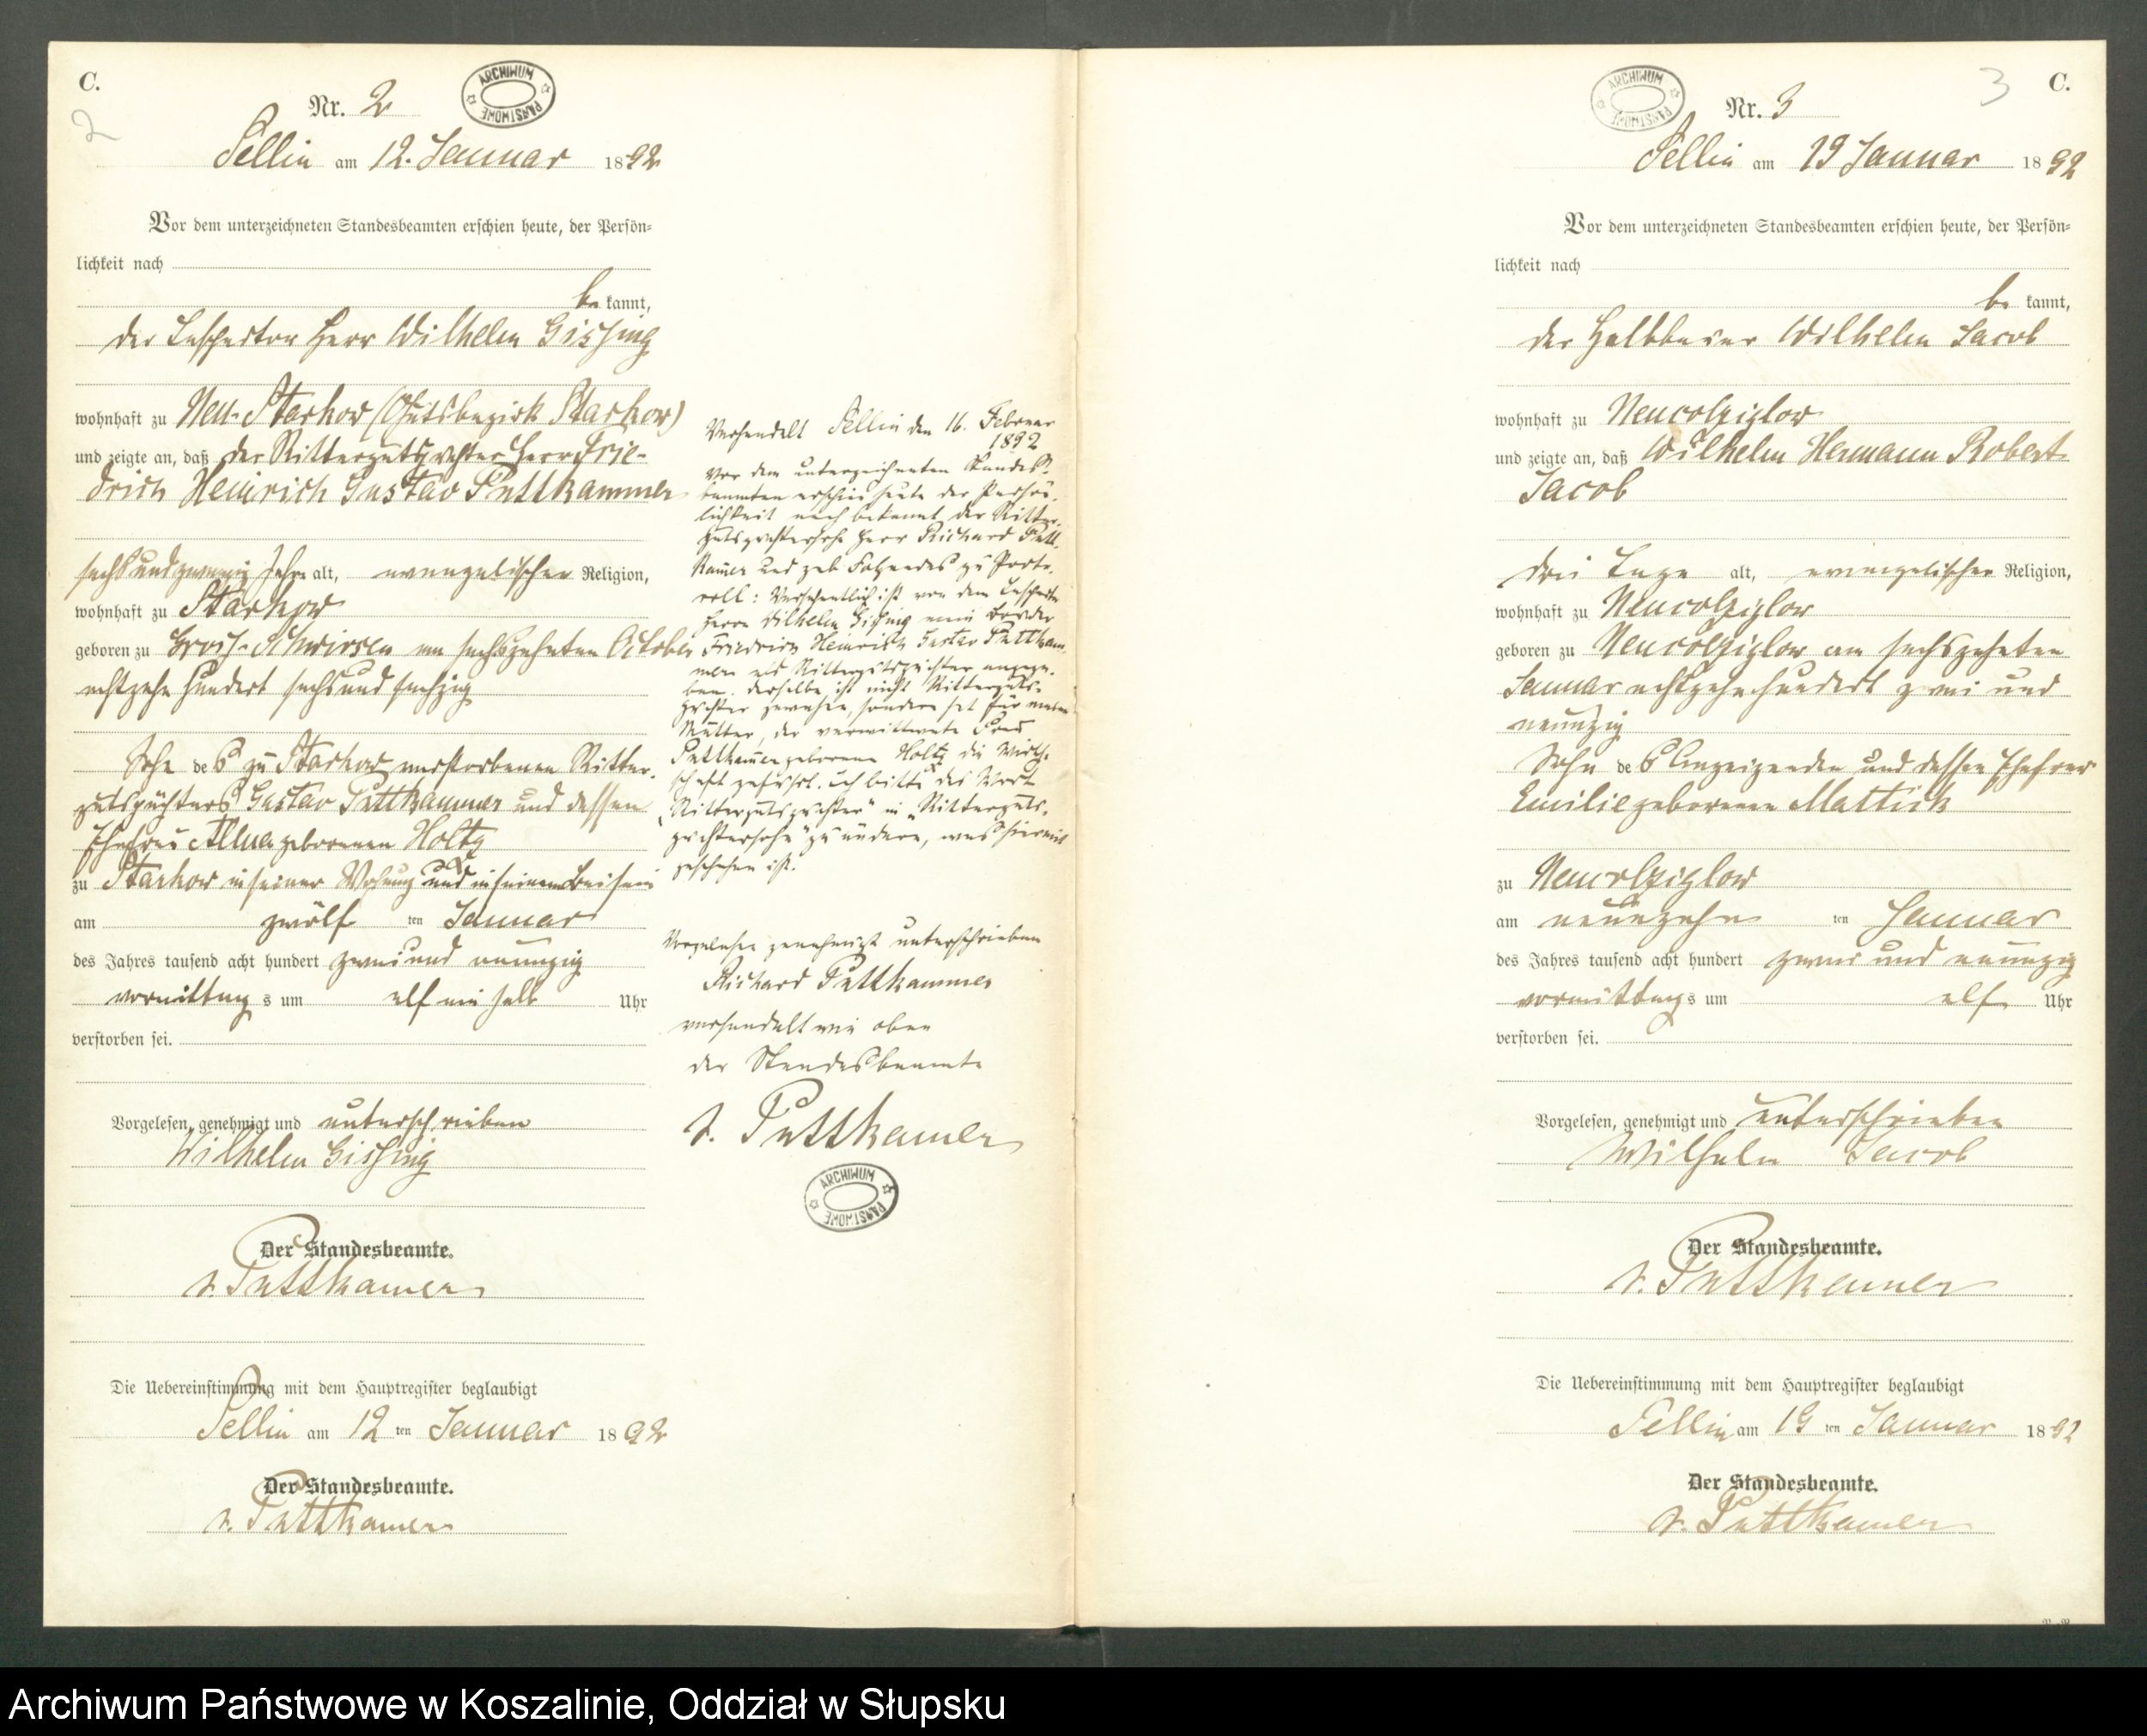 C.
2
Nr. 2
ARCHIWUM PAŃSTWOWE
Sellin am 12. Januar 1892
Vor dem unterzeichneten Standesbeamten erschien heute, der Persön=
lichkeit nach
be kannt,
der Inspector Herr Wilhelm Gissing
wohnhaft zu Neu-Starkow (Gutsbezirk Starkow)
und zeigte an, daß der Rittergutspächter Herr Frie-
drich Heinrich Gustav Puttkammer
sechs und zwanzig Jahre alt, evangelischer Religion,
wohnhaft zu Starkow
geboren zu Gross-Schwirsen am sechszehnten October
achtzehn hundert fünf und sechzig
Sohn des zu Starkow verstorbenen Ritter-
gutspächters Gustav Puttkammer und dessen
Ehefrau Alma geborenen Holtz
zu Starkow in seiner Wohnung und in seinem Beisein
am zwölf ten Januar
des Jahres tausend acht hundert zwei und neunzig
vormittag s um elf ein halb Uhr
verstorben sei.
Vorgelesen, genehmigt und unterschrieben
Wilhelm Gissing
Der Standesbeamte.
v. Puttkamer
Die Uebereinstimmung mit dem Hauptregister beglaubigt
Sellin am 12 ten Januar 1892
Der Standesbeamte.
v. Puttkamer
Verhandelt Sellin den 16. Februar
1892
Vor dem unterzeichneten Standes-
beamten erschien heute der Persön-
lichkeit nach bekannt der Ritter-
gutspächtersohn Herr Richard Putt-
kamer und gab Folgendes zu Proto-
coll: Versehentlich ist von dem Inspector
Herrn Wilhelm Gissing mein Bruder
Friedrich Heinrich Gustav Puttkam
mer als Rittergutspächter angege-
ben. Derselbe ist nicht Ritterguts-
pächter gewesen, sondern hat für meine
Mutter, der verwittwete Frau
Puttkamer geborene Holtz die Wirth-
schaft geführt. Ich bitte das Wort
"Rittergutspächter" in "Ritterguts-
pächtersohn" zu ändern, was hiermit
geschehen ist.
Vorgelesen genehmigt unterschrieben
Richard Puttkammer
verhandelt wie oben
der Standesbeamte
v. Puttkamer
ARCHIWUM PAŃSTWOWE
3
C.
ARCHIWUM PAŃSTWOWE
Nr. 3
Sellin am 19 Januar 1892
Vor dem unterzeichneten Standesbeamten erschien heute, der Persön=
lichkeit nach
be kannt,
der Halbbauer Wilhelm Jacob
wohnhaft zu Neucolziglow
und zeigte an, daß Wilhelm Hermann Robert
Jacob
drei Tage alt, evangelischer Religion,
wohnhaft zu Neucolziglow
geboren zu Neucolziglow am sechszehnten
Januar achtzehnhundert zwei und
neunzig
Sohn des Anzeigenden und dessen Ehefrau
Emilie geborenen Mattick
zu Neucolziglow
am neunzehn ten Januar
des Jahres tausend acht hundert zwei und neunzig
vormittag s um elf Uhr
verstorben sei.
Vorgelesen, genehmigt und unterschrieben
Wilhelm Jacob
Der Standesbeamte.
v. Puttkamer
Die Uebereinstimmung mit dem Hauptregister beglaubigt
Sellin am 19 ten Januar 1892
Der Standesbeamte.
v. Puttkamer
Archiwum Państwowe w Koszalinie, Oddział w Słupsku